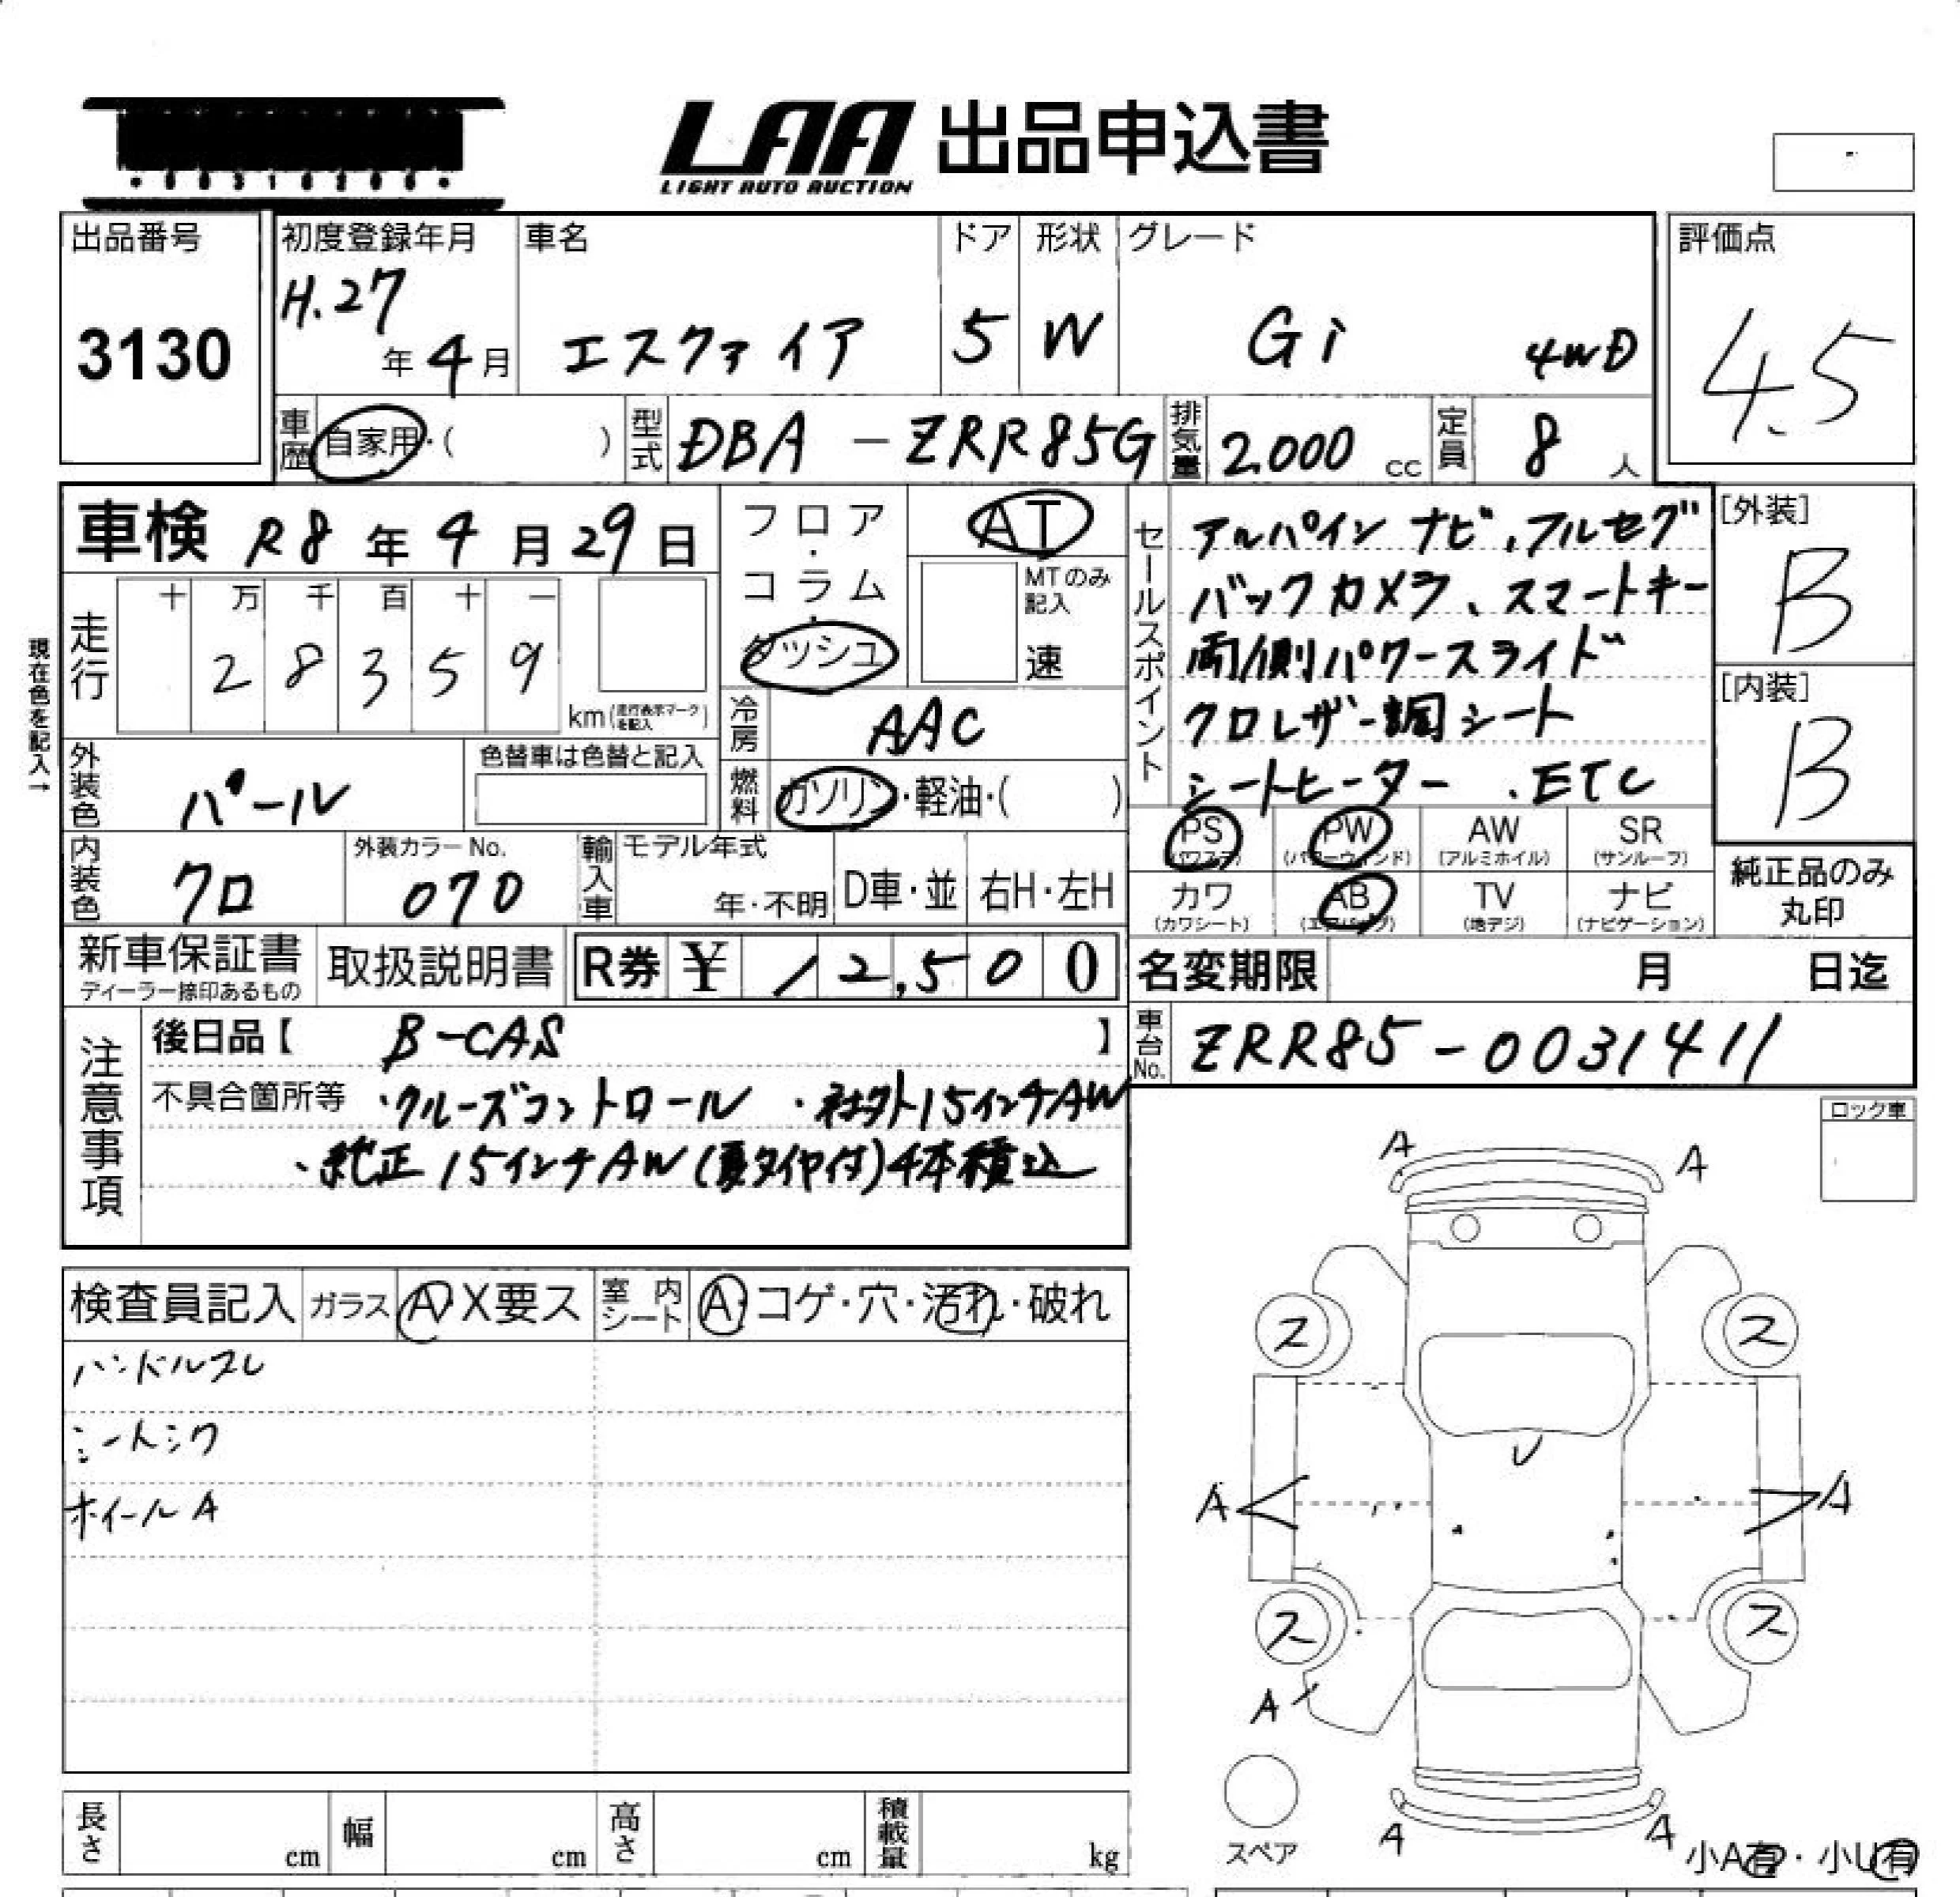 LAA 出品申込書
LIGHT AUTO AUCTION
出品番号 初度登録年月 車名 ドア 形状 グレード 評価点
3130 H.27年4月 エスクァイア 5 W Gi 4WD 4.5
車歴 自家用・( ) 型式 DBA-ZRR85G 排気量 2,000 cc 定員 8 人
車検 R8年4月29日 フロア・コラム・ダッシュ AT
MTのみ記入 速
現在色を記入→
走行 十 万 千 百 十 一
2 8 3 5 9 km(走行表示マークを記入)
冷房 AAC
外装色 パール 色替車は色替と記入
燃料 ガソリン・軽油・( )
内装色 クロ 外装カラーNo. 070 輸入車 モデル年式 年・不明 D車・並 右H・左H
セールスポイント
アルパイン ナビ、フルセグ
バックカメラ、スマートキー
両側パワースライド
クロレザー調シート
シートヒーター、ETC
[外装] B
[内装] B
PS (パワステ) PW (パワーウィンド) AW (アルミホイル) SR (サンルーフ)
カワ (カワシート) AB (エアバッグ) TV (地デジ) ナビ (ナビゲーション)
純正品のみ丸印
新車保証書 ディーラー捺印あるもの 取扱説明書 R券 ¥ 12,500
名変期限 月 日迄
車台No. ZRR85-0031411
注意事項
後日品【 B-CAS 】
不具合箇所等 ・クルーズコントロール ・社外15インチAW
・純正15インチAW(夏タイヤ付)4本積込
ロック車
検査員記入 ガラス A・X要ス 室内シート A・コゲ・穴・汚れ・破れ
ハンドルスレ
シートシワ
ホイールA
A A
ス ス
U
A A
ス ス
A
スペア
A A
小A有・小U有
長さ cm 幅 cm 高さ cm 積載量 kg